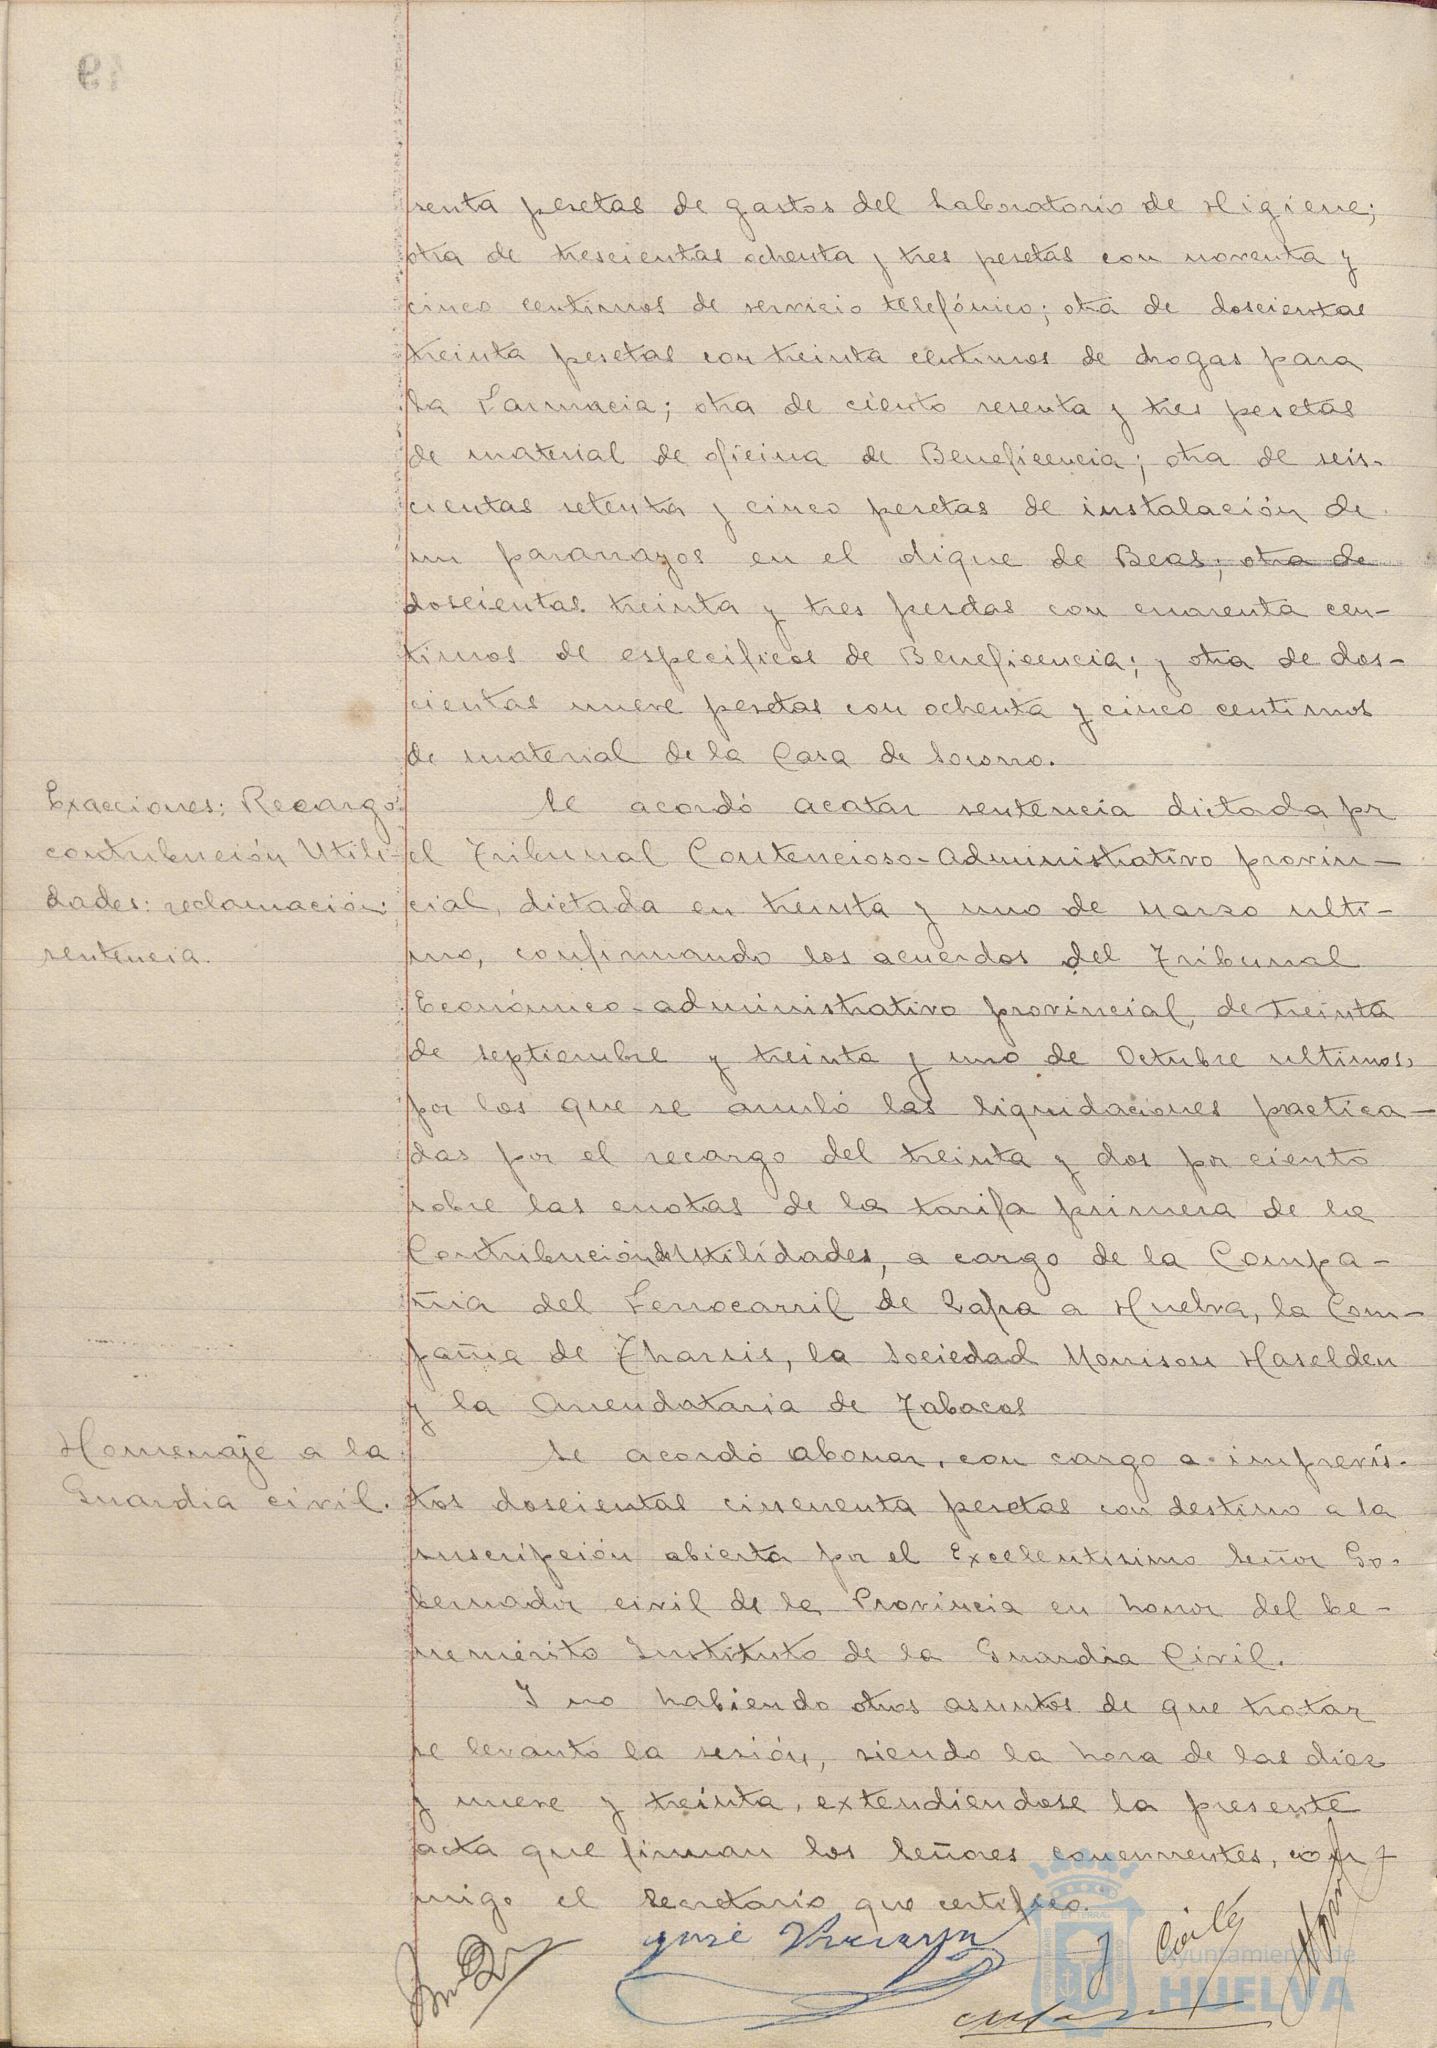 senta pesetas de gastos del Laboratorio de Higiene;
otra de trescientas ochenta y tres pesetas con noventa y
cinco centimos de servicio telefónico; otra de doscientas
treinta pesetas con treinta centimos de drogas para
la Farmacia; otra de ciento sesenta y tres pesetas
de material de oficina de Beneficencia; otra de seis-
cientas setenta y cinco pesetas de instalación de
un pararrayos en el dique de Beas; otra de
doscientas treinta y tres pesetas con cuarenta cen-
timos de especificos de Beneficencia; y otra de dos-
cientas nueve pesetas con ochenta y cinco centimos
de material de la Casa de Socorro.
Exacciones: Recargo
contribución Utili-
dades: reclamación:
sentencia.
Se acordó acatar sentencia dictada pr
el Tribunal Contencioso-Administrativo provin-
cial, dictada en treinta y uno de Marzo ulti-
mo, confirmando los acuerdos del Tribunal
Económico-administrativo provincial, de treinta
de septiembre y treinta y uno de Octubre ultimos,
por los que se anuló las liquidaciones practica-
das por el recargo del treinta y dos por ciento
sobre las cuotas de la tarifa primera de la
Contribución de Utilidades, a cargo de la Compa-
ñia del Ferrocarril de Zafra a Huelva, la Com-
pañia de Tharsis, la Sociedad Morrison Haselden
y la Arrendataria de Tabacos
Homenaje a la
Guardia civil.
Se acordó abonar, con cargo a imprevis-
tos doscientas cincuenta pesetas con destino a la
suscripción abierta por el Excelentisimo Señor Go-
bernador civil de la Provincia en honor del be-
nemérito Instituto de la Guardia Civil.
Y no habiendo otros asuntos de que tratar
se levantó la sesión, siendo la hora de las diez
y nueve y treinta, extendiendose la presente
acta que firman los Señores concurrentes, con-
migo el Secretario que certifico.
José
Ayuntamiento de
HUELVA